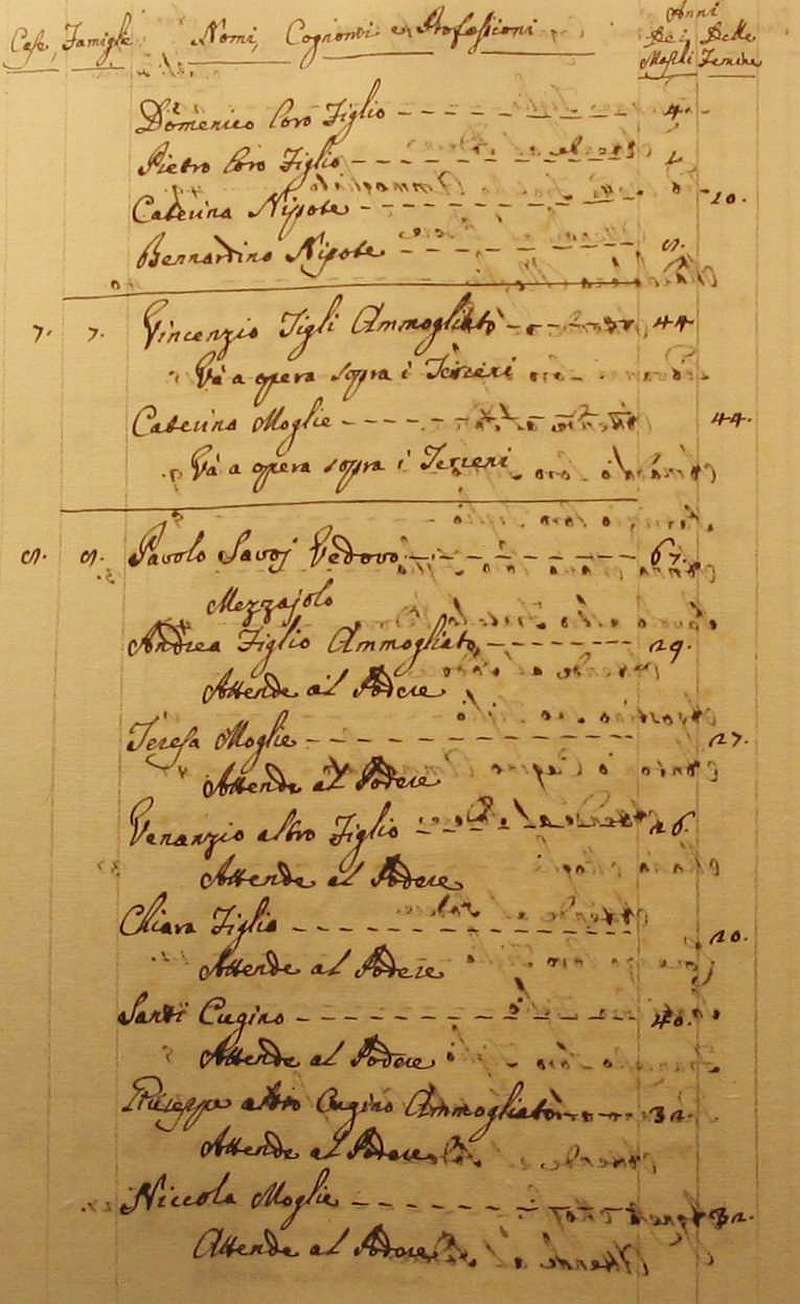 Case Famiglie Nomi, Cognomi e Professioni Anni
Dei Delle
Maschi Femine
Domenico loro Figlio 4.
Pietro loro Figlio
Caterina Nipote 10.
Bernardino Nipote
7. 7. Vincenzio Figli Ammogliato 44
Và a opera sopra i Terreni
Caterina Moglie 44.
Và a opera sopra i Terreni
Pavolo Savoj Vedovo 67.
Mezzajolo
Andrea Figlio Ammogliato, 29.
Attende al Podere
Teresa Moglie 27.
Attende al Podere
Venanzio altro Figlio 26.
Attende al Podere
Chiara Figlia 20.
Attende al Podere
Santi Cugino 40.
Attende al Podere
Giuseppe altro Cugino Ammogliato 32.
Attende al Podere
Niccola Moglie 32.
Attende al Podere